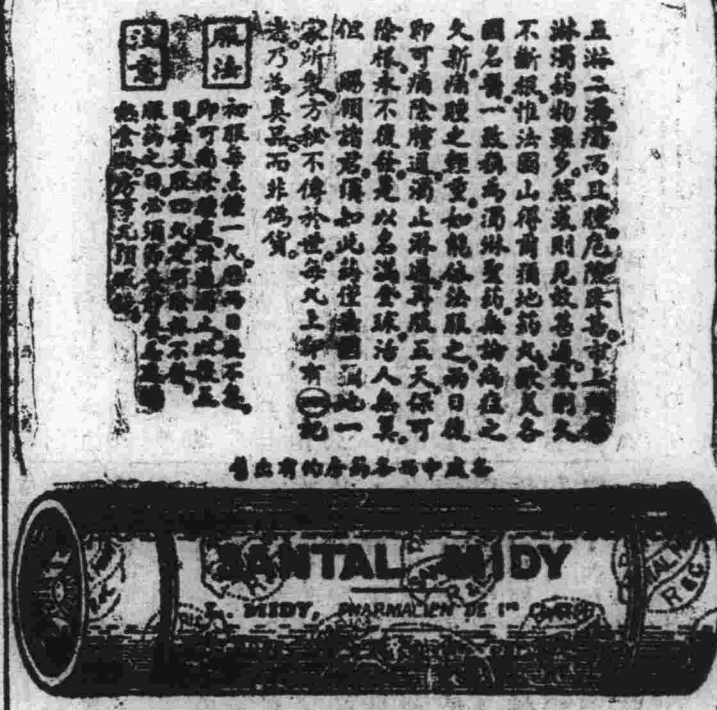 五淋二濁痛而且腫危險殊甚市上
淋濁药物雖多然或則見效甚遲或則久
不斷根惟法國山得爾彌地药丸歐美各
國名醫一致稱為濁淋聖药無論病症之
久新痛腫之輕重如能依法服之兩日後
即可痛除腫退濁止淋通再服五天保可
除根永不復發是以名滿全球活人無算
但 賜顧諸君須知此药僅法國彌地一
家所製方秘不傳於世每丸上印有㊀記
者乃為真品而非偽貨。
服法
初服每点鐘一丸歷兩日夜不息
即可痛除腫退淋通濁止以後五
日每天服四丸定可除根不發
注意
服药之日必須
各處中西各药房均有出售
SANTAL MIDY
L. MIDY, PHARMACIEN DE 1re CLASSE